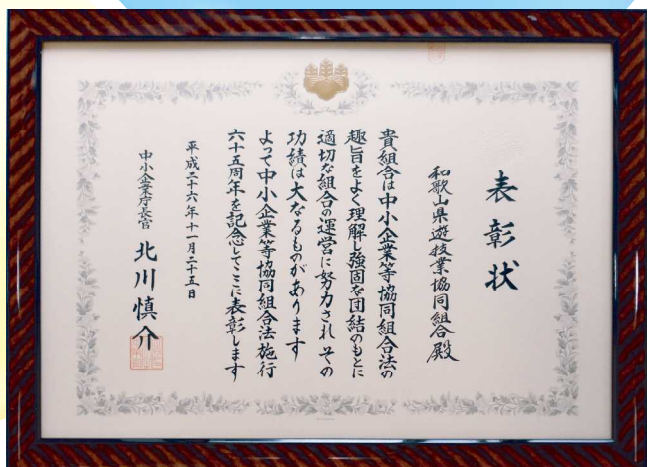 表彰状
和歌山県遊技業協同組合殿
貴組合は中小企業等協同組合法の
趣旨をよく理解し強固な団結のもとに
適切な組合の運営に努力されその
功績は大なるものがあります
よって中小企業等協同組合法施行
六十五周年を記念してここに表彰します
平成二十六年十一月二十五日
中小企業庁長官 北川慎介